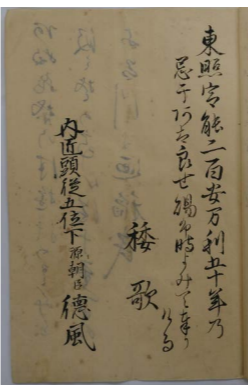 東照宮能二百安万利五十年乃
忌于阿太良世賜布時よみて奉り
ける
倭歌
内匠頭從五位下源朝臣德風